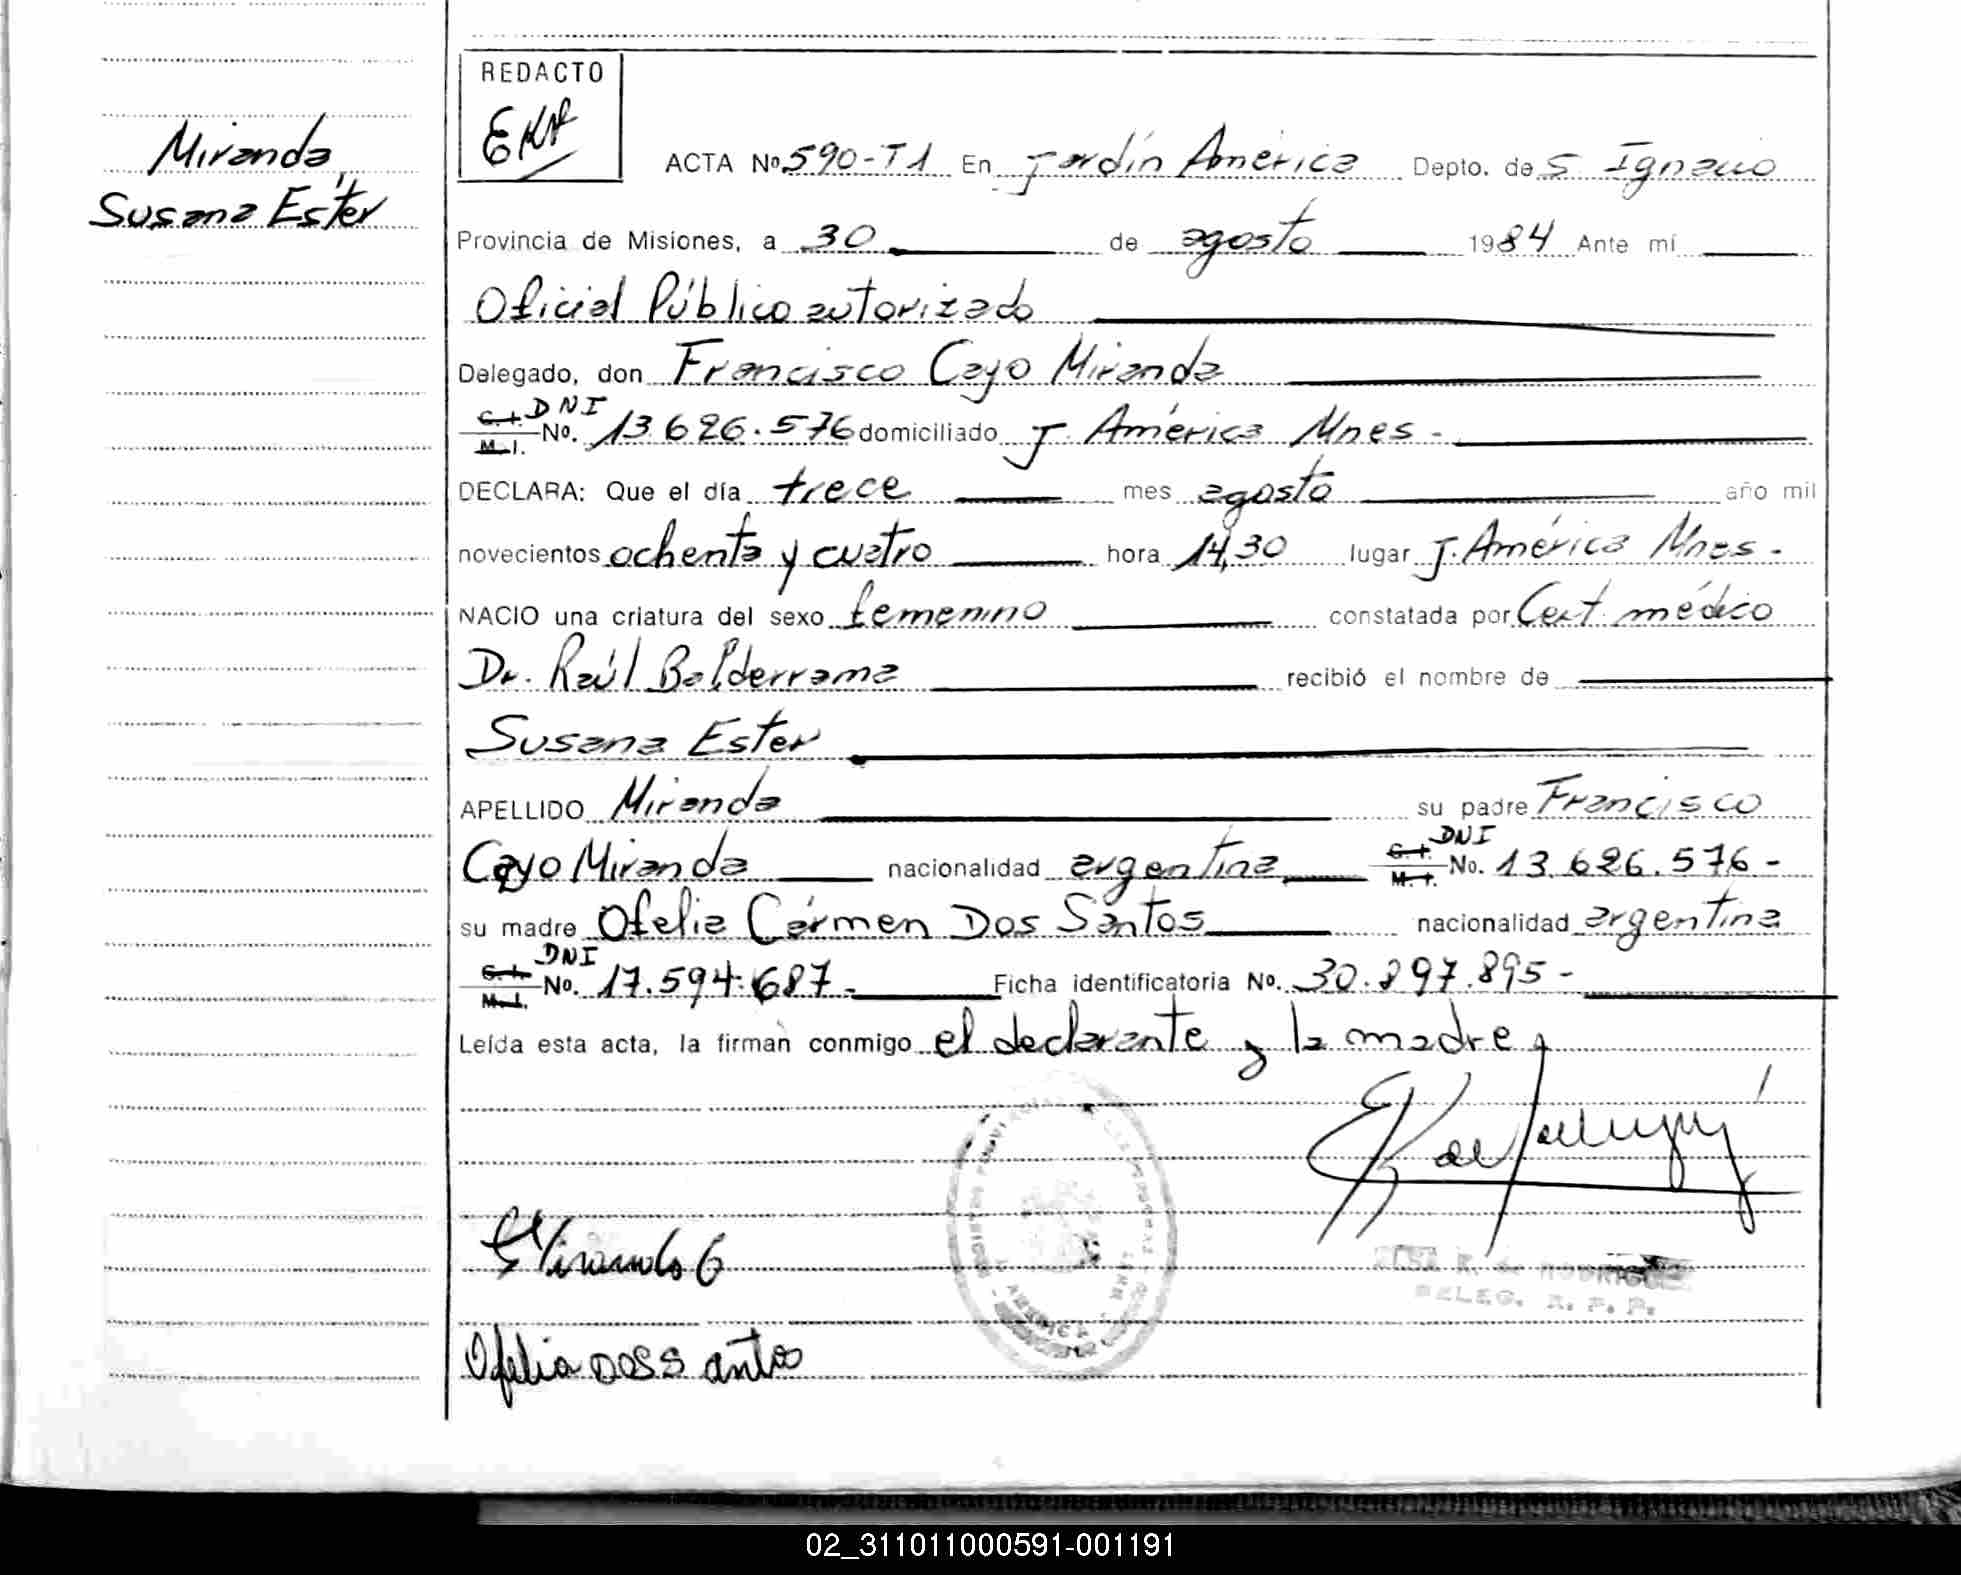 Miranda
Susana Ester
REDACTO
ACTA Nº 590-T1 En Jardín América Depto. de S. Ignacio
Provincia de Misiones, a 30 de agosto 1984 Ante mí
Oficial Público autorizado
Delegado, don Francisco Cayo Miranda
C. I. DNI
M. I. No. 13.626.576 domiciliado J. América Mnes -
DECLARA: Que el día trece mes agosto año mil
novecientos ochenta y cuatro hora 14,30 lugar J. América Mnes.-
NACIO una criatura del sexo femenino constatada por Cert. médico
Dr. Raúl Balderrama recibió el nombre de
Susana Ester
APELLIDO Miranda su padre Francisco
Cayo Miranda nacionalidad argentina C. I. M. I. DNI No. 13.626.576 -
su madre Ofelia Cármen Dos Santos nacionalidad argentina
C. I. M. I. DNI No. 17.594.687 - Ficha identificatoria No. 30.897.895 -
Leída esta acta, la firman conmigo el declarante y la madre
DELEG. R. P. P.
Ofelia Dos Santos
02_311011000591-001191